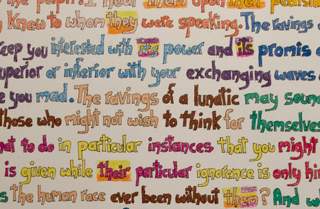 the people? I need them upon their
Knew to whom they were speaking. The ravings
keep you interested with its power and its promis
superior or inferior with your exchanging waves
e you mad. The ravings of a lunatic may sound
those who might not wish to think for themselves
hat to do in particular instances that you might
is given while their particular ignorance is only hi
s the human race ever been without them? And w